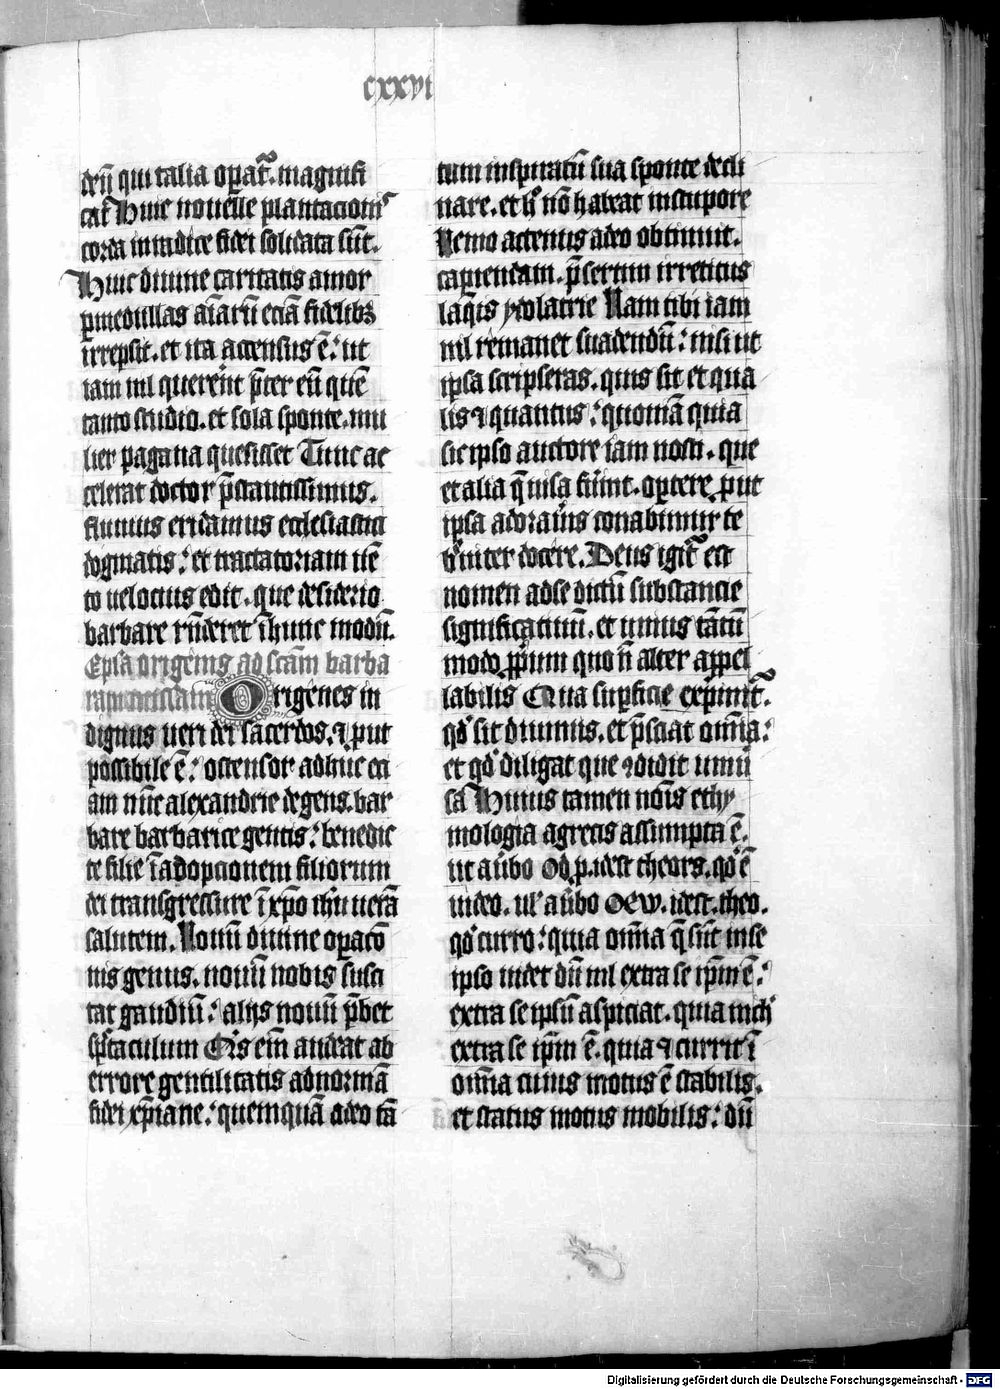 cxxvi
deū qui talia opat᷑. magnifi
cat᷑ Huic nouelle plantacionis
corda in radice fidei solidata sūt.
Huic diuine caritatis amor
pmedullas aīarū eciā fidelibꝫ
irrepsit. et ita accensus ē: ut
iam nil quererēt pter eū quē
tanto studio. et sola sponte. mu
lier pagana quesisset Tunc ac
celerat doctor pstantissimus.
fluuius eridamus ecclesiastici
dogmatis: et tractatoriam
to uelocius edit. que desiderio
barbare rn̄deret īhunc modū.
Epl'a origenis ad scām barba
ram Origenes in
dignus ueri dei sacerdos. ⁊ put
possibile ē: ostensor adhuc eci
am nūc alexandrie degens. bar
bare barbarice gentis: benedic
te filie īadopcionem filiorum
dei transgressure īxpo ihu uerā
salutem. Nouū diuine opacō
nis genus. nouū nobis susci
tat gaudiū: alijs nouū pbet
spectaculum Qis eīm audeat ab
errore gentilitatis adnormā
fidei xpiane: quemquā adeo tā
tum inspiratū sua sponte decli
nare. et hͦ nō habeat instupore
Nemo actenus adeo obtinuit.
capiendam. psertim irreticus
laqis ydolatrie Nam tibi iam
nil remanet suadendū: nisi ut
ipsa scripseras. quis sit et qua
lis ⁊ quantus: quoniā quia
sic ipso auctore iam nosti. que
et alia q̄ uisa fūint. optere put
ipsa conabimur te
bͥuiter docere. Deus igit᷑ est
nomen adse dictū substancie
significatiuū. et unius tātū
modo ppium quo n̄ alter appel
labilis Qua supficie expimit᷑.
qd' sit diuinus. et psciat omīa:
et qd' diligat que ↄdidit uniū
sa Huius tamen nōis ethy
mologia agrecis assumpta ē.
ut aūbo idest theors. qd' ē
uideo. ul' aūbo idest. theo.
qd' curro: quia omīa q̄ sūt inse
ipso uidet dū nil extra se ipm ē:
extra se ipsū aspiciat. quia nichͥ
extra se ipm ē. quia ⁊ currit ī
omīa cuius motus ē stabilis.
et status motus mobilis: dū
Digitalisierung gefördert durch die Deutsche Forschungsgemeinschaft - DFG